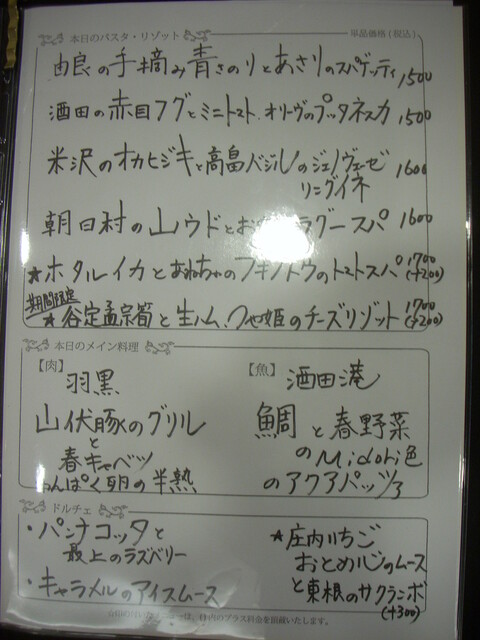 本日のパスタ・リゾット
単品価格(税込)
由良の手摘み青さのりとあさりのスパゲッティ 1500
酒田の赤目フグとミニトマト、オリーヴのプッタネスカ 1500
米沢のオカヒジキと高畠バジルのジェノヴェーゼ
リングイネ 1600
朝日村の山ウドとお ラグースパ 1600
★ホタルイカとあねちゃのフキノトウのトマトスパ 1700
(+200)
期間限定
★谷定孟宗筍と生ハム、つや姫のチーズリゾット 1700
(+200)
本日のメイン料理
【肉】
羽黒
山伏豚のグリル
と
春キャベツ
わんぱく卵の半熟
【魚】
酒田港
鯛と春野菜
のMidori色
のアクアパッツァ
ドルチェ
・パンナコッタと
最上のラズベリー
・キャラメルのアイスムース
★庄内いちご
おとめ心のムース
と東根のサクランボ
(+300)
プラス料金を頂戴いたします。